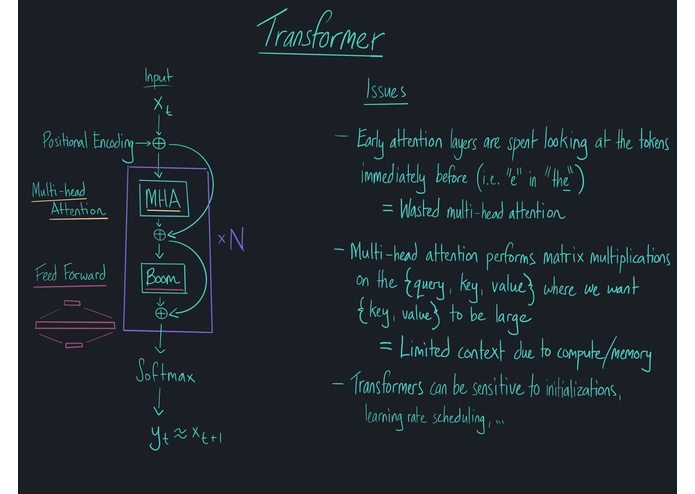 Transformer
Input
x_t
Positional Encoding
⊕
Multi-head
Attention
MHA
⊕
×N
Feed Forward
Boom
⊕
Softmax
y_t ≈ x_t+1
Issues
– Early attention layers are spent looking at the tokens
immediately before (i.e. "e" in "the")
= Wasted multi-head attention
– Multi-head attention performs matrix multiplications
on the {query, key, value} where we want
{key, value} to be large
= Limited context due to compute/memory
– Transformers can be sensitive to initializations,
learning rate scheduling, ...